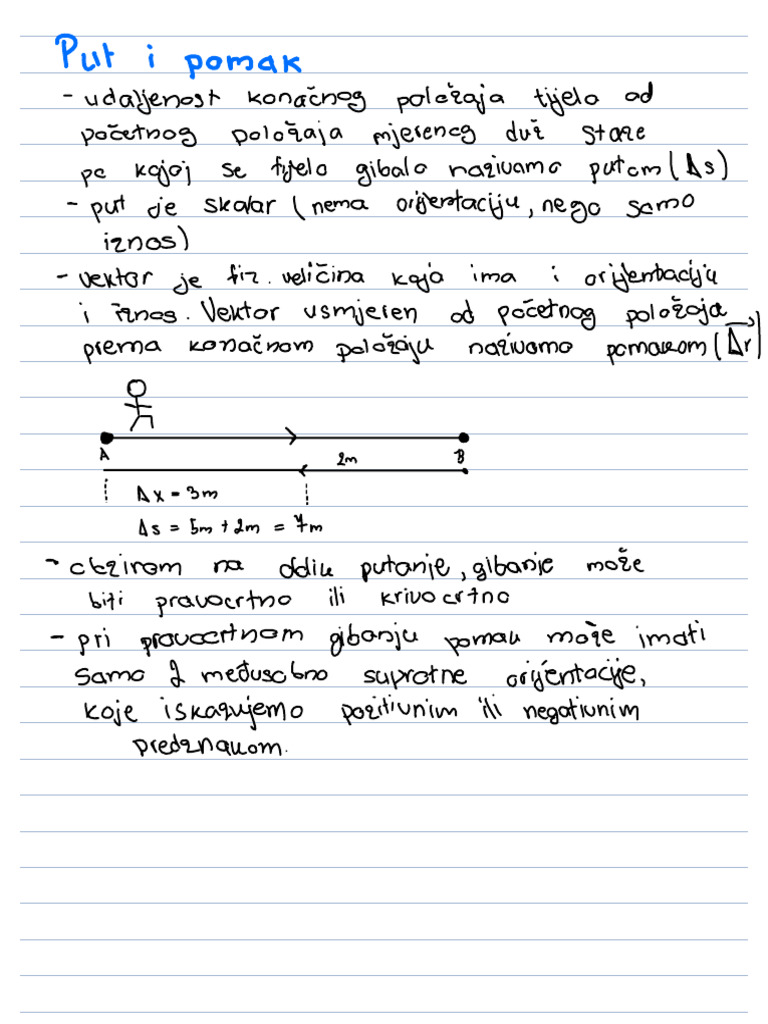 Put i pomak
- udaljenost konačnog položaja tijela od
početnog položaja mjerenog duž staze
po kojoj se tijelo gibalo nazivamo putom (Δs)
- put je skalar (nema orijentaciju, nego samo
iznos)
- vektor je fiz. veličina koja ima i orijentaciju
i iznos. Vektor usmjeren od početnog položaja
prema konačnom položaju nazivamo pomakom (Δr)
A 2m B
Δx = 3m
Δs = 5m + 2m = 7m
- obzirom na oblik putanje, gibanje može
biti pravocrtno ili krivocrtno
- pri pravocrtnom gibanju pomak može imati
samo 2 međusobno suprotne orijentacije,
koje iskazujemo pozitivnim ili negativnim
predznakom.